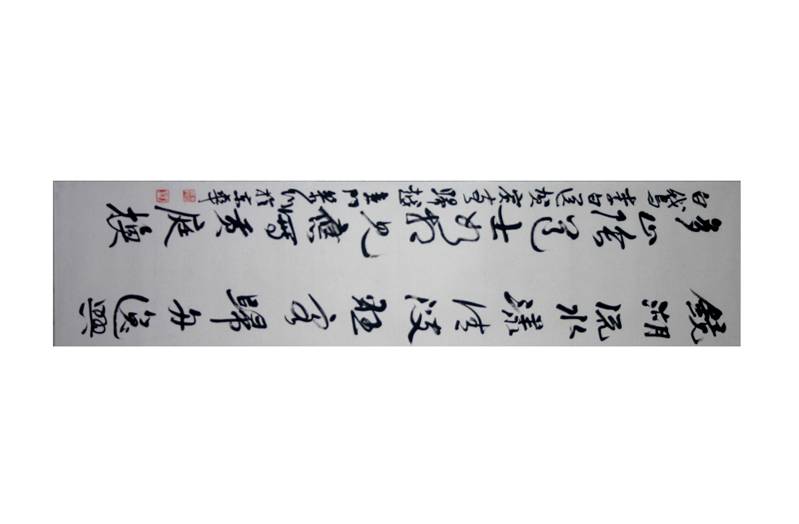 鏡湖流水漾清波狂客歸舟逸興
多山陰道士如相見應寫黃庭換
白鵞 李白送賀賓客歸越